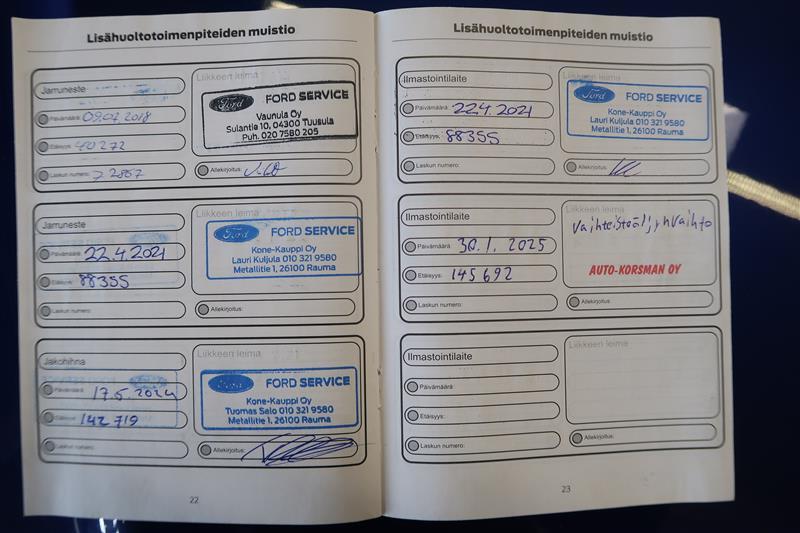 Lisähuoltotoimenpiteiden muistio
Jarruneste
Päivämäärä: 09.07.2018
Etäisyys: 40272
Laskun numero: 72867
Liikkeen leima
Ford FORD SERVICE
Vaunula Oy
Sulantie 10, 04300 Tuusula
Puh. 020 7580 205
Allekirjoitus:
Jarruneste
Päivämäärä: 22.4.2021
Etäisyys: 88355
Laskun numero:
Liikkeen leima
Ford FORD SERVICE
Kone-Kauppi Oy
Lauri Kuljula 010 321 9580
Metallitie 1, 26100 Rauma
Allekirjoitus:
Jakohihna
Päivämäärä: 17.5.2024
Etäisyys: 142 719
Laskun numero:
Liikkeen leima
Ford FORD SERVICE
Kone-Kauppi Oy
Tuomas Salo 010 321 9580
Metallitie 1, 26100 Rauma
Allekirjoitus:
22
Lisähuoltotoimenpiteiden muistio
Ilmastointilaite
Päivämäärä: 22.4.2021
Etäisyys: 88355
Laskun numero:
Liikkeen leima
Ford FORD SERVICE
Kone-Kauppi Oy
Lauri Kuljula 010 321 9580
Metallitie 1, 26100 Rauma
Allekirjoitus:
Ilmastointilaite
Päivämäärä: 30.1.2025
Etäisyys: 145 692
Laskun numero:
Liikkeen leima
Vaihteistoöljynvaihto
AUTO-KORSMAN OY
Allekirjoitus:
Ilmastointilaite
Päivämäärä:
Etäisyys:
Laskun numero:
Liikkeen leima
Allekirjoitus:
23